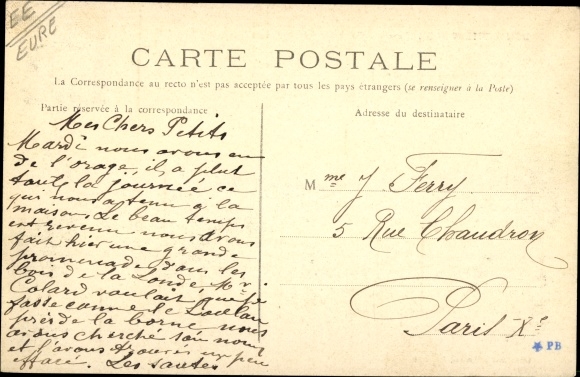 EE
EURE
CARTE POSTALE
La Correspondance au recto n'est pas acceptée par tous les pays étrangers (se renseigner à la Poste)
Partie réservée à la correspondance
Adresse du destinataire
Mes Chers Petits
Mardi nous avons eu
de l'orage, il a plut
toute la journée ce
qui nous a tenu a la
maison. Le beau temps
est revenu nous avons
fait hier une grande
promenade dans les
bois de la Londe, Mr
Colard voulait que je
fasse comme le
près de la borne nous
avons cherché son nom
et l'avons trouvés un peu
effacé. Les santés
Mme J Ferry
5 Rue Chaudron
Paris Xe
PB